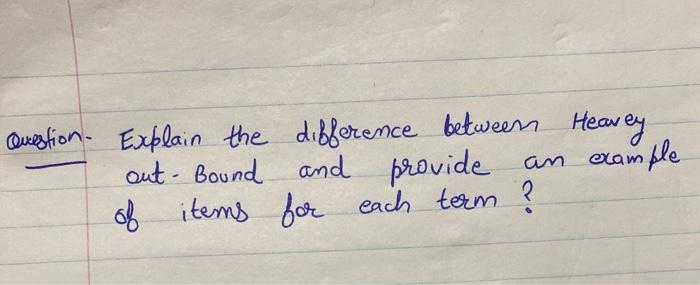 Question- Explain the difference between Heavey
out-Bound and provide an example
of items for each term ?